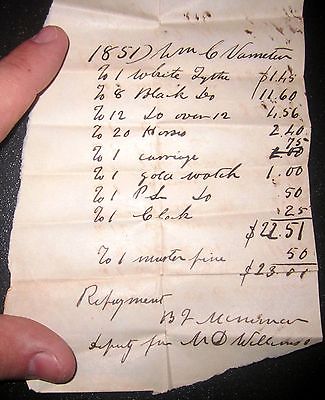 1851) Wm C Vanmeter
To 1 White Tythe $1.45
To 8 Black Do 11.60
To 12 Do over 12 4.56
To 20 Horses 2.40
To 1 carriage 75
To 1 gold watch 1.00
To 1 P.L. Do 50
To 1 Clock 25
$22.51
To 1 muster fine 50
$23.01
Repayment
B F
Deputy for M D Williams